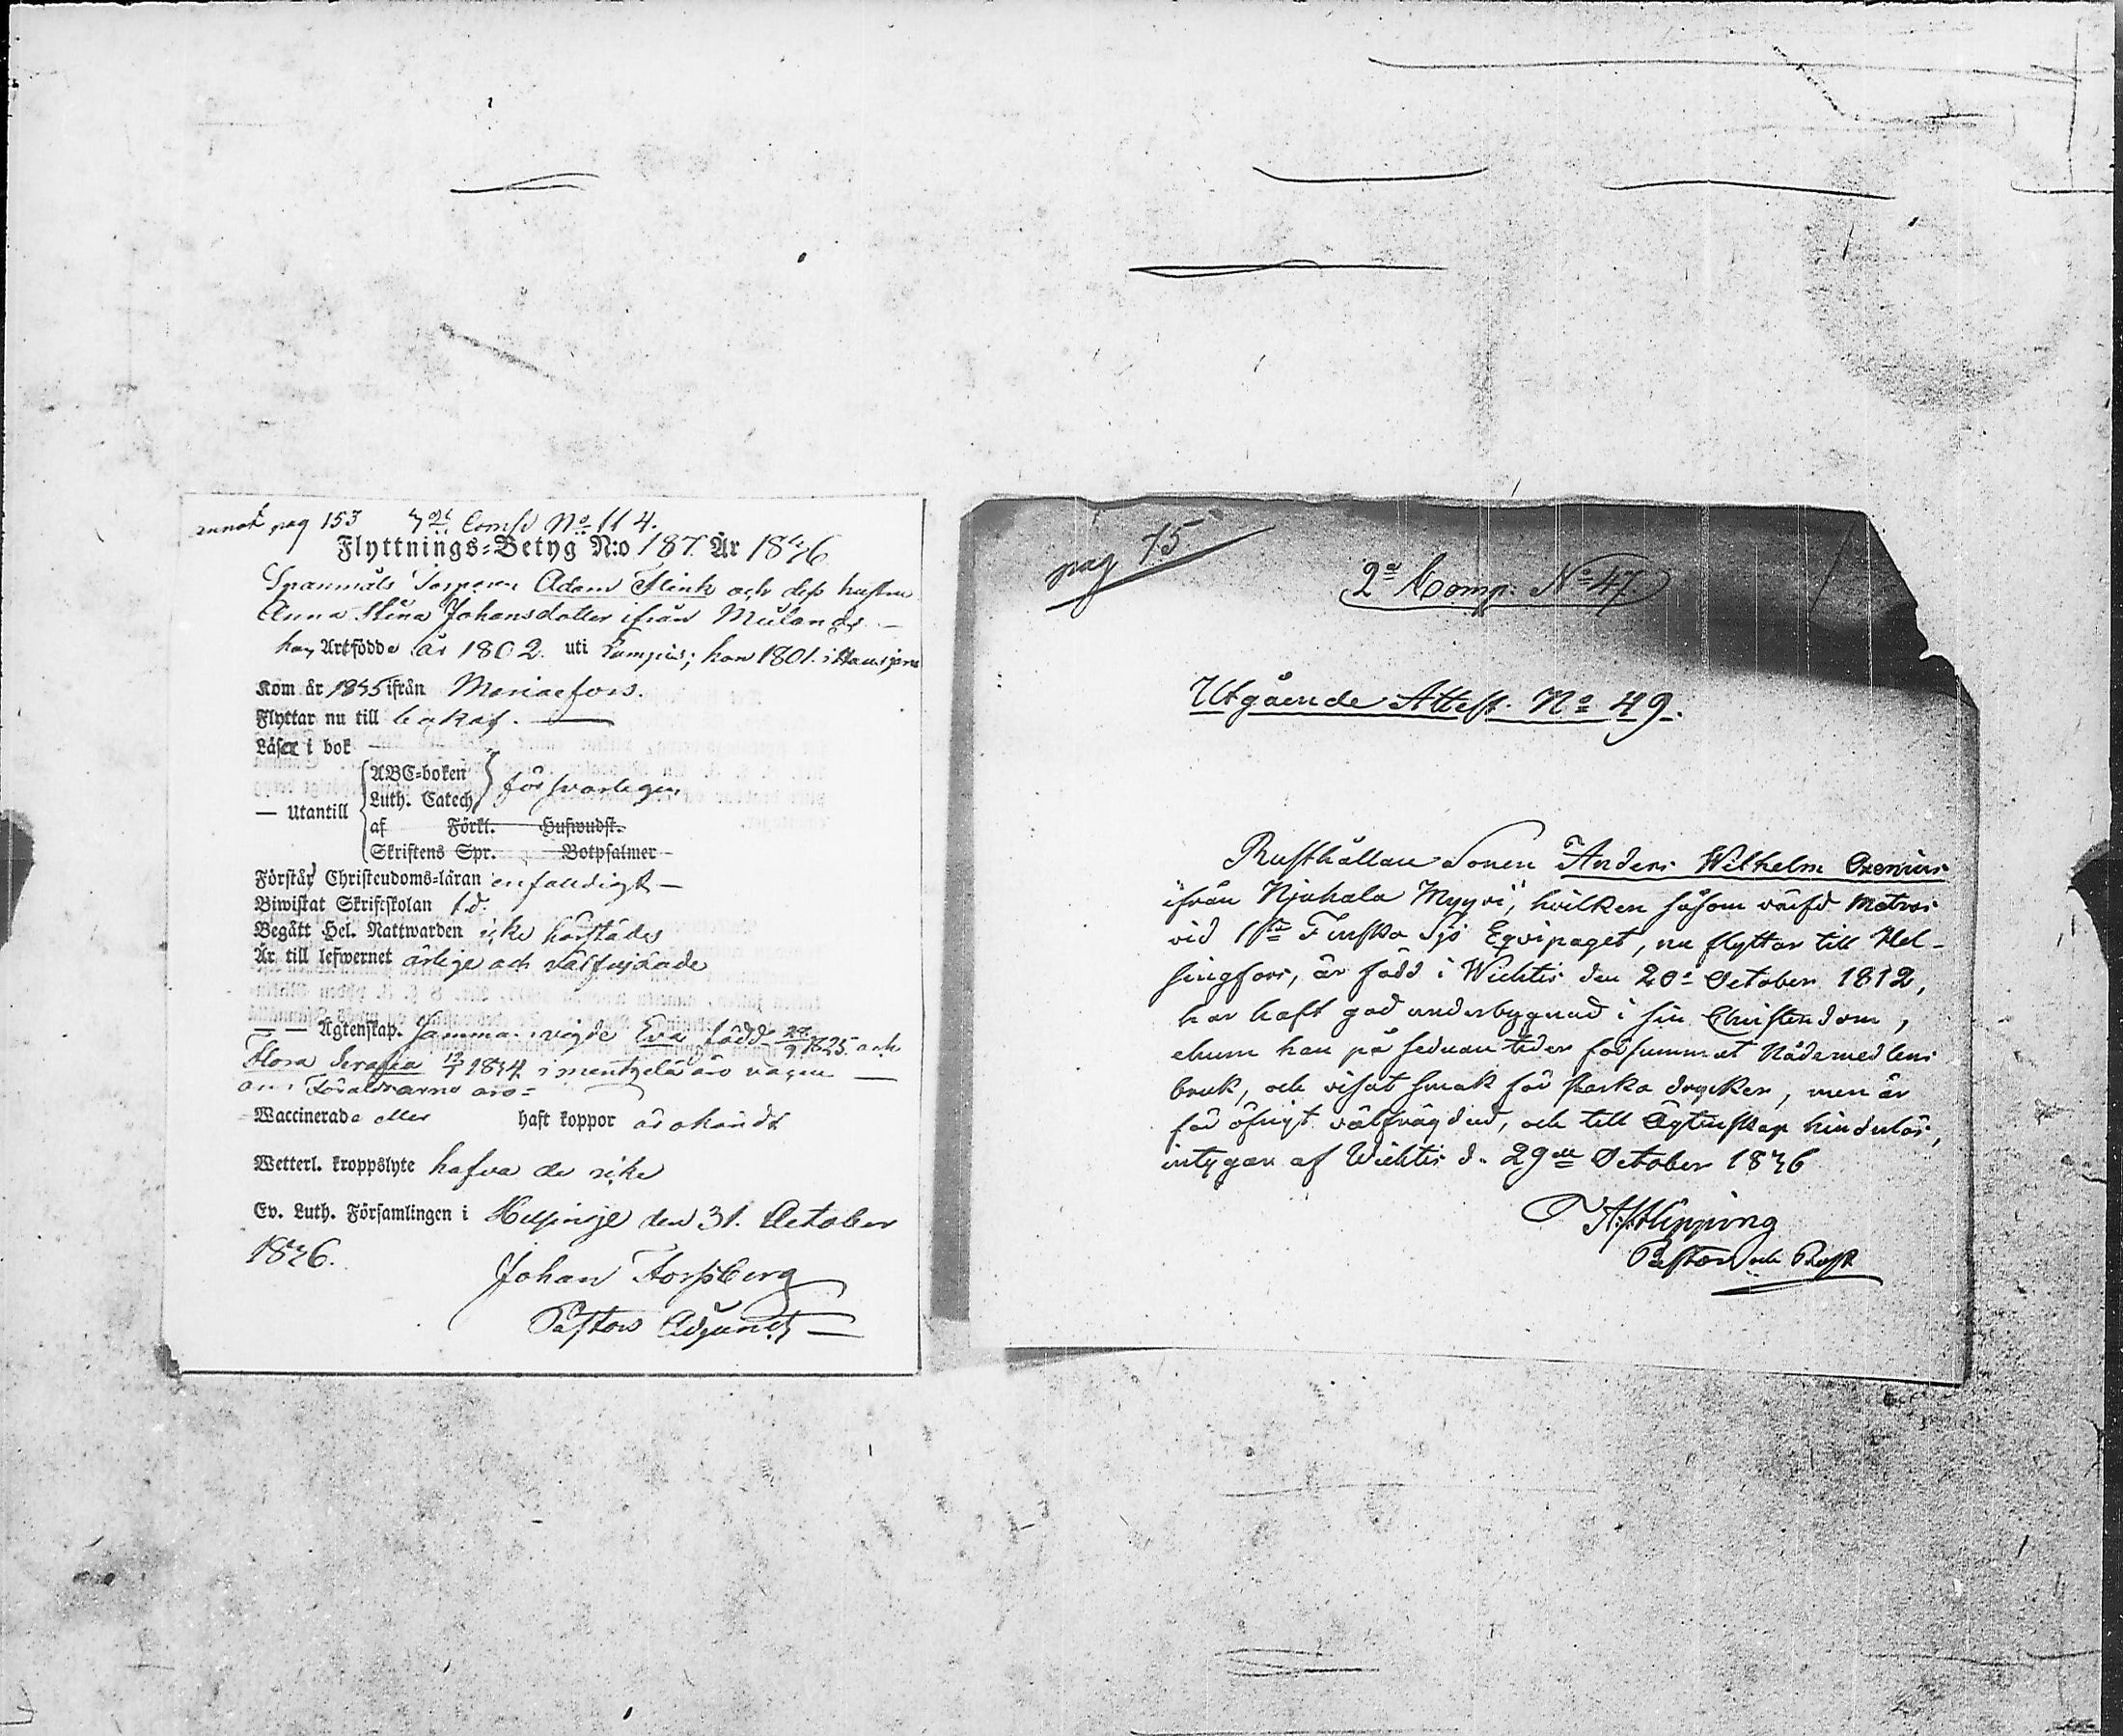 pag 153 7de Comp No 114.
Flyttnings-Betyg N:o 187 År 1846
Spannmåls Torparen Adam Flink och dess hustru
Anna Stina Johansdotter ifrån Mülands
han Ärefödde år 1802. uti Lampis; hon 1801. i Hausjärvi
Kom år 1845 ifrån Mariaefors.
Flyttar nu till bakas.
Läser i bok
— Utantill
ABC-boken
Luth. Catech försvarligen
af Förkl. Husw­udst.
Skriftens Spr. Botpsalmer
Förstår Christendoms-läran enfaldigt —
Biwistat Skriftskolan f.d.
Begått Hel. Nattwarden icke härstädes
Är till lefwernet ärlige och välfrejdade
— — Ägtenskap. Sammanvigde Eva född 29/9 1825. och
Flora Serafia 12/1 1834 i mentzelä äro vägen —
om Föräldrarne äro =
Waccinerade eller haft koppor är okändt
Wetterl. kroppslyte hafva de icke
Ev. Luth. Församlingen i Helsinge den 31. October
1846.
Johan Forssberg
Pastors Adjunct
pag 15
2a Comp. No 47.
Utgående Attest. No 49.
Rusthållare Sonen Anders Wilhelm Oxenius
ifrån Njuhala Myyri, hvilken såsom värfd Matros
vid 1sta Finska Sjö Eqvipaget, nu flyttar till Hel-
singfors, är född i Wichtis den 20de October 1812,
har haft god underbyggnad i sin Christendom,
ehuru han på sednare tider försummat Nådemedlens
bruk, och visat smak för starka drycker, men är
för öfrigt välfrägdad, och till Ägtenskap hinderlös,
intygar af Wichtis d. 29de October 1846
Hipping
Pastor och Prost